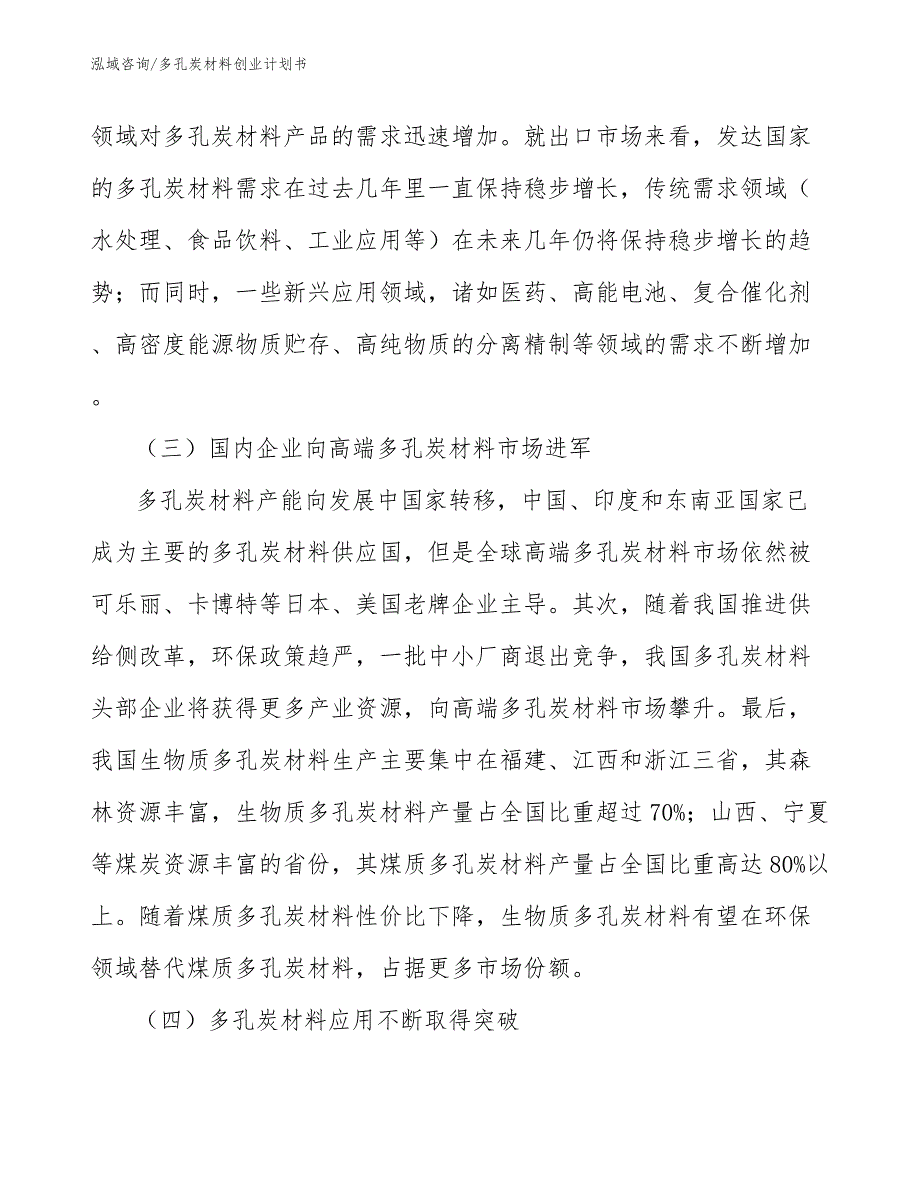 泓域咨询/多孔炭材料创业计划书
领域对多孔炭材料产品的需求迅速增加。就出口市场来看，发达国家
的多孔炭材料需求在过去几年里一直保持稳步增长，传统需求领域（
水处理、食品饮料、工业应用等）在未来几年仍将保持稳步增长的趋
势；而同时，一些新兴应用领域，诸如医药、高能电池、复合催化剂
、高密度能源物质贮存、高纯物质的分离精制等领域的需求不断增加
。
（三）国内企业向高端多孔炭材料市场进军
多孔炭材料产能向发展中国家转移，中国、印度和东南亚国家已
成为主要的多孔炭材料供应国，但是全球高端多孔炭材料市场依然被
可乐丽、卡博特等日本、美国老牌企业主导。其次，随着我国推进供
给侧改革，环保政策趋严，一批中小厂商退出竞争，我国多孔炭材料
头部企业将获得更多产业资源，向高端多孔炭材料市场攀升。最后，
我国生物质多孔炭材料生产主要集中在福建、江西和浙江三省，其森
林资源丰富，生物质多孔炭材料产量占全国比重超过70%；山西、宁夏
等煤炭资源丰富的省份，其煤质多孔炭材料产量占全国比重高达80%以
上。随着煤质多孔炭材料性价比下降，生物质多孔炭材料有望在环保
领域替代煤质多孔炭材料，占据更多市场份额。
（四）多孔炭材料应用不断取得突破